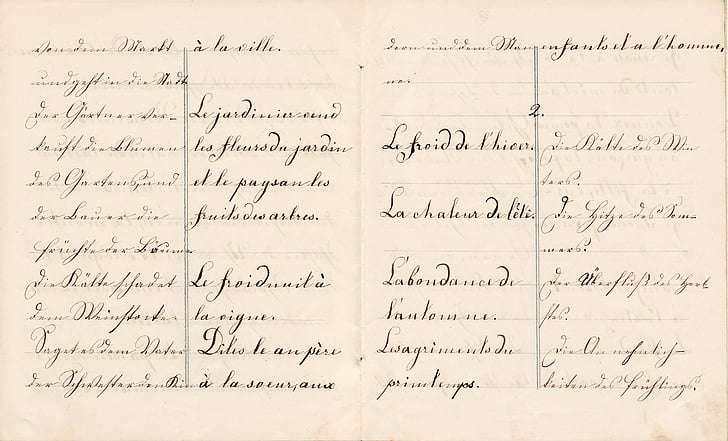 von dem Markt
und geht in die Stadt
Der Gärtner ver-
kauft die Blumen
des Gartens, und
der Bauer die
Früchte der Bäume.
Die Kälte schadet
dem Weinstocke.
Saget es dem Vater
der Schwester den Kin
à la ville.
Le jardinier vend
les fleurs du jardin
et le paysan les
fruits des arbres.
Le froid nuit à
la vigne.
Dites le au père
à la soeur, aux
dern und dem Man
enfants et a l'homme.
2.
Le froid de l'hiver.
La chaleur de l'été.
L'abondance de
l'automne.
Les agriments du
printemps.
Die Kälte des Win
ters.
Die Hitze des Som-
mers.
Der Überfluß des Herb
stes.
Die Annehmlich-
keiten des Frühlings.